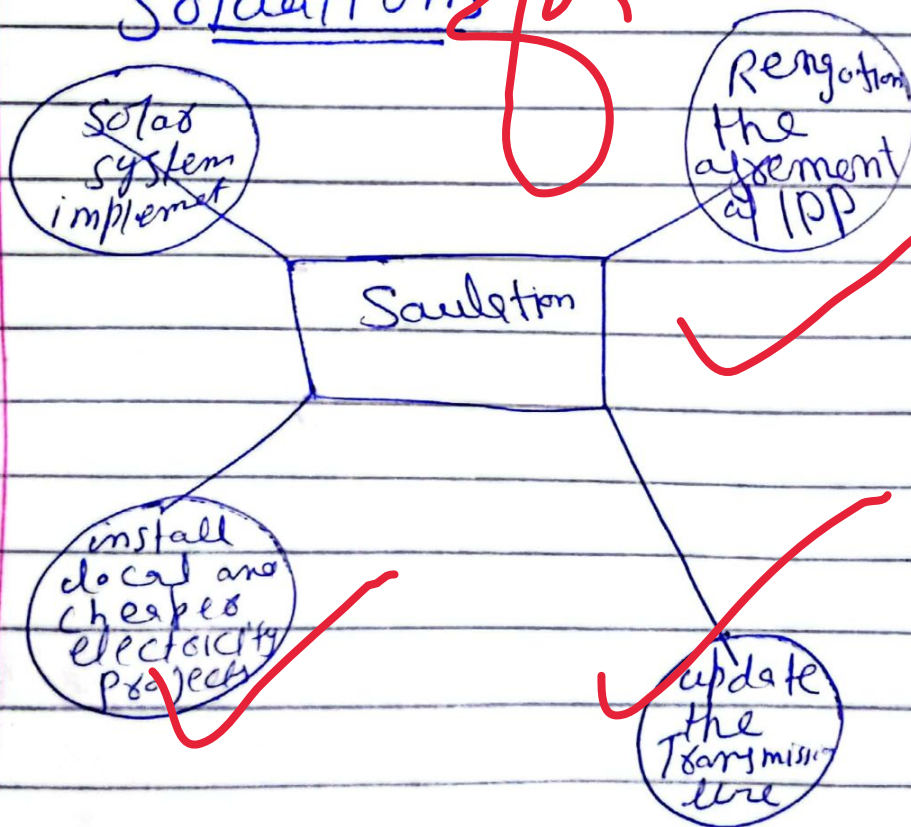 Solar
system
implemet
Rengotion
the
agrement
of IPP
Sauletion
install
local and
cheaper
electricity
projects
update
the
Transmissi
line